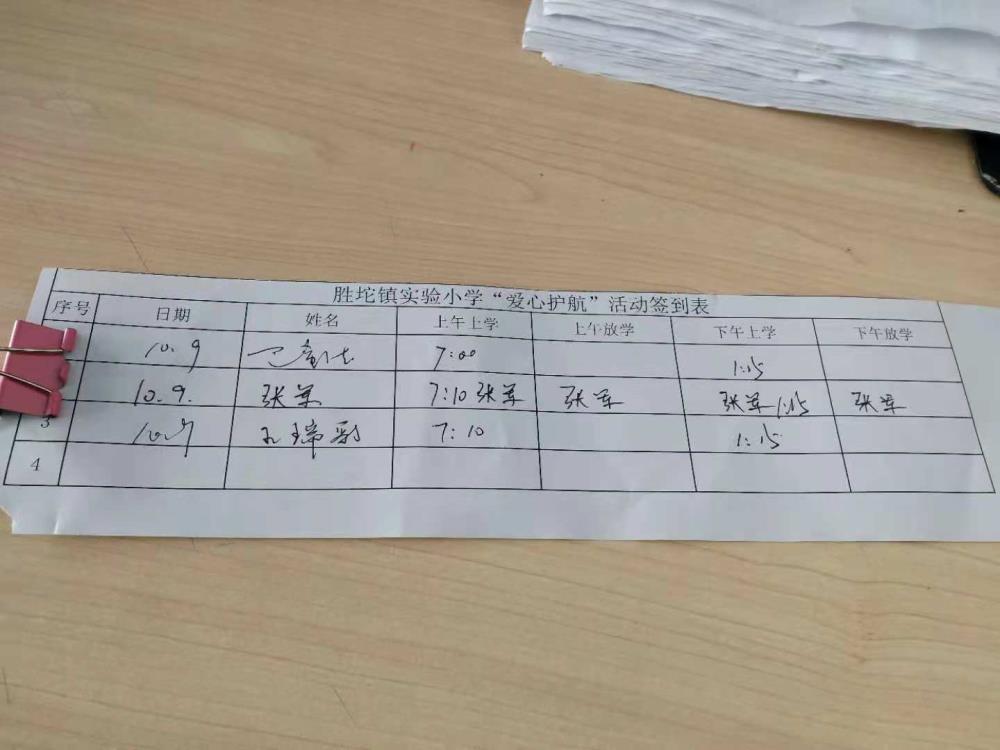 胜坨镇实验小学“爱心护航”活动签到表
序号 日期 姓名 上午上学 上午放学 下午上学 下午放学
10.9 7:00 1:15
10.9. 张军 7:10 张军 张军 张军 1:15 张军
3 10.9 7:10 1:15
4